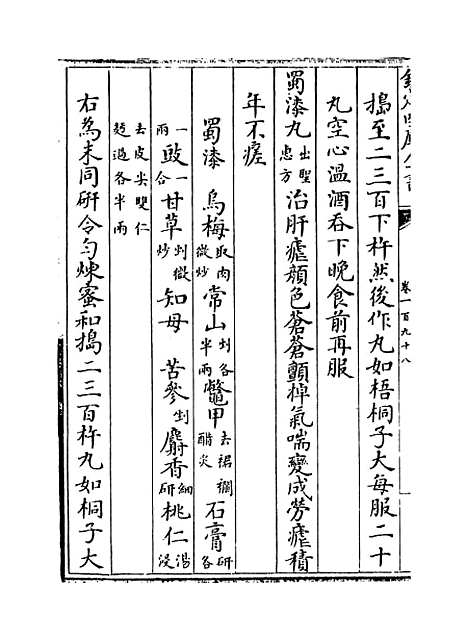 欽定四庫全書
卷一百九十八
搗至二三百下杵然後作丸如梧桐子大每服二十
丸空心溫酒吞下晚食前再服
蜀漆丸出聖惠方治肝瘧顏色蒼蒼顫掉氣喘變成勞瘧積
年不瘥
蜀漆 烏梅取肉微炒常山剉各半兩鼈甲去裙襴醋炙石膏研各
一兩豉一合甘草剉微炒知母 苦參剉麝香細研桃仁湯浸
去皮尖雙仁麩過各半兩
右為末同研令勻煉蜜和搗二三百杵丸如桐子大